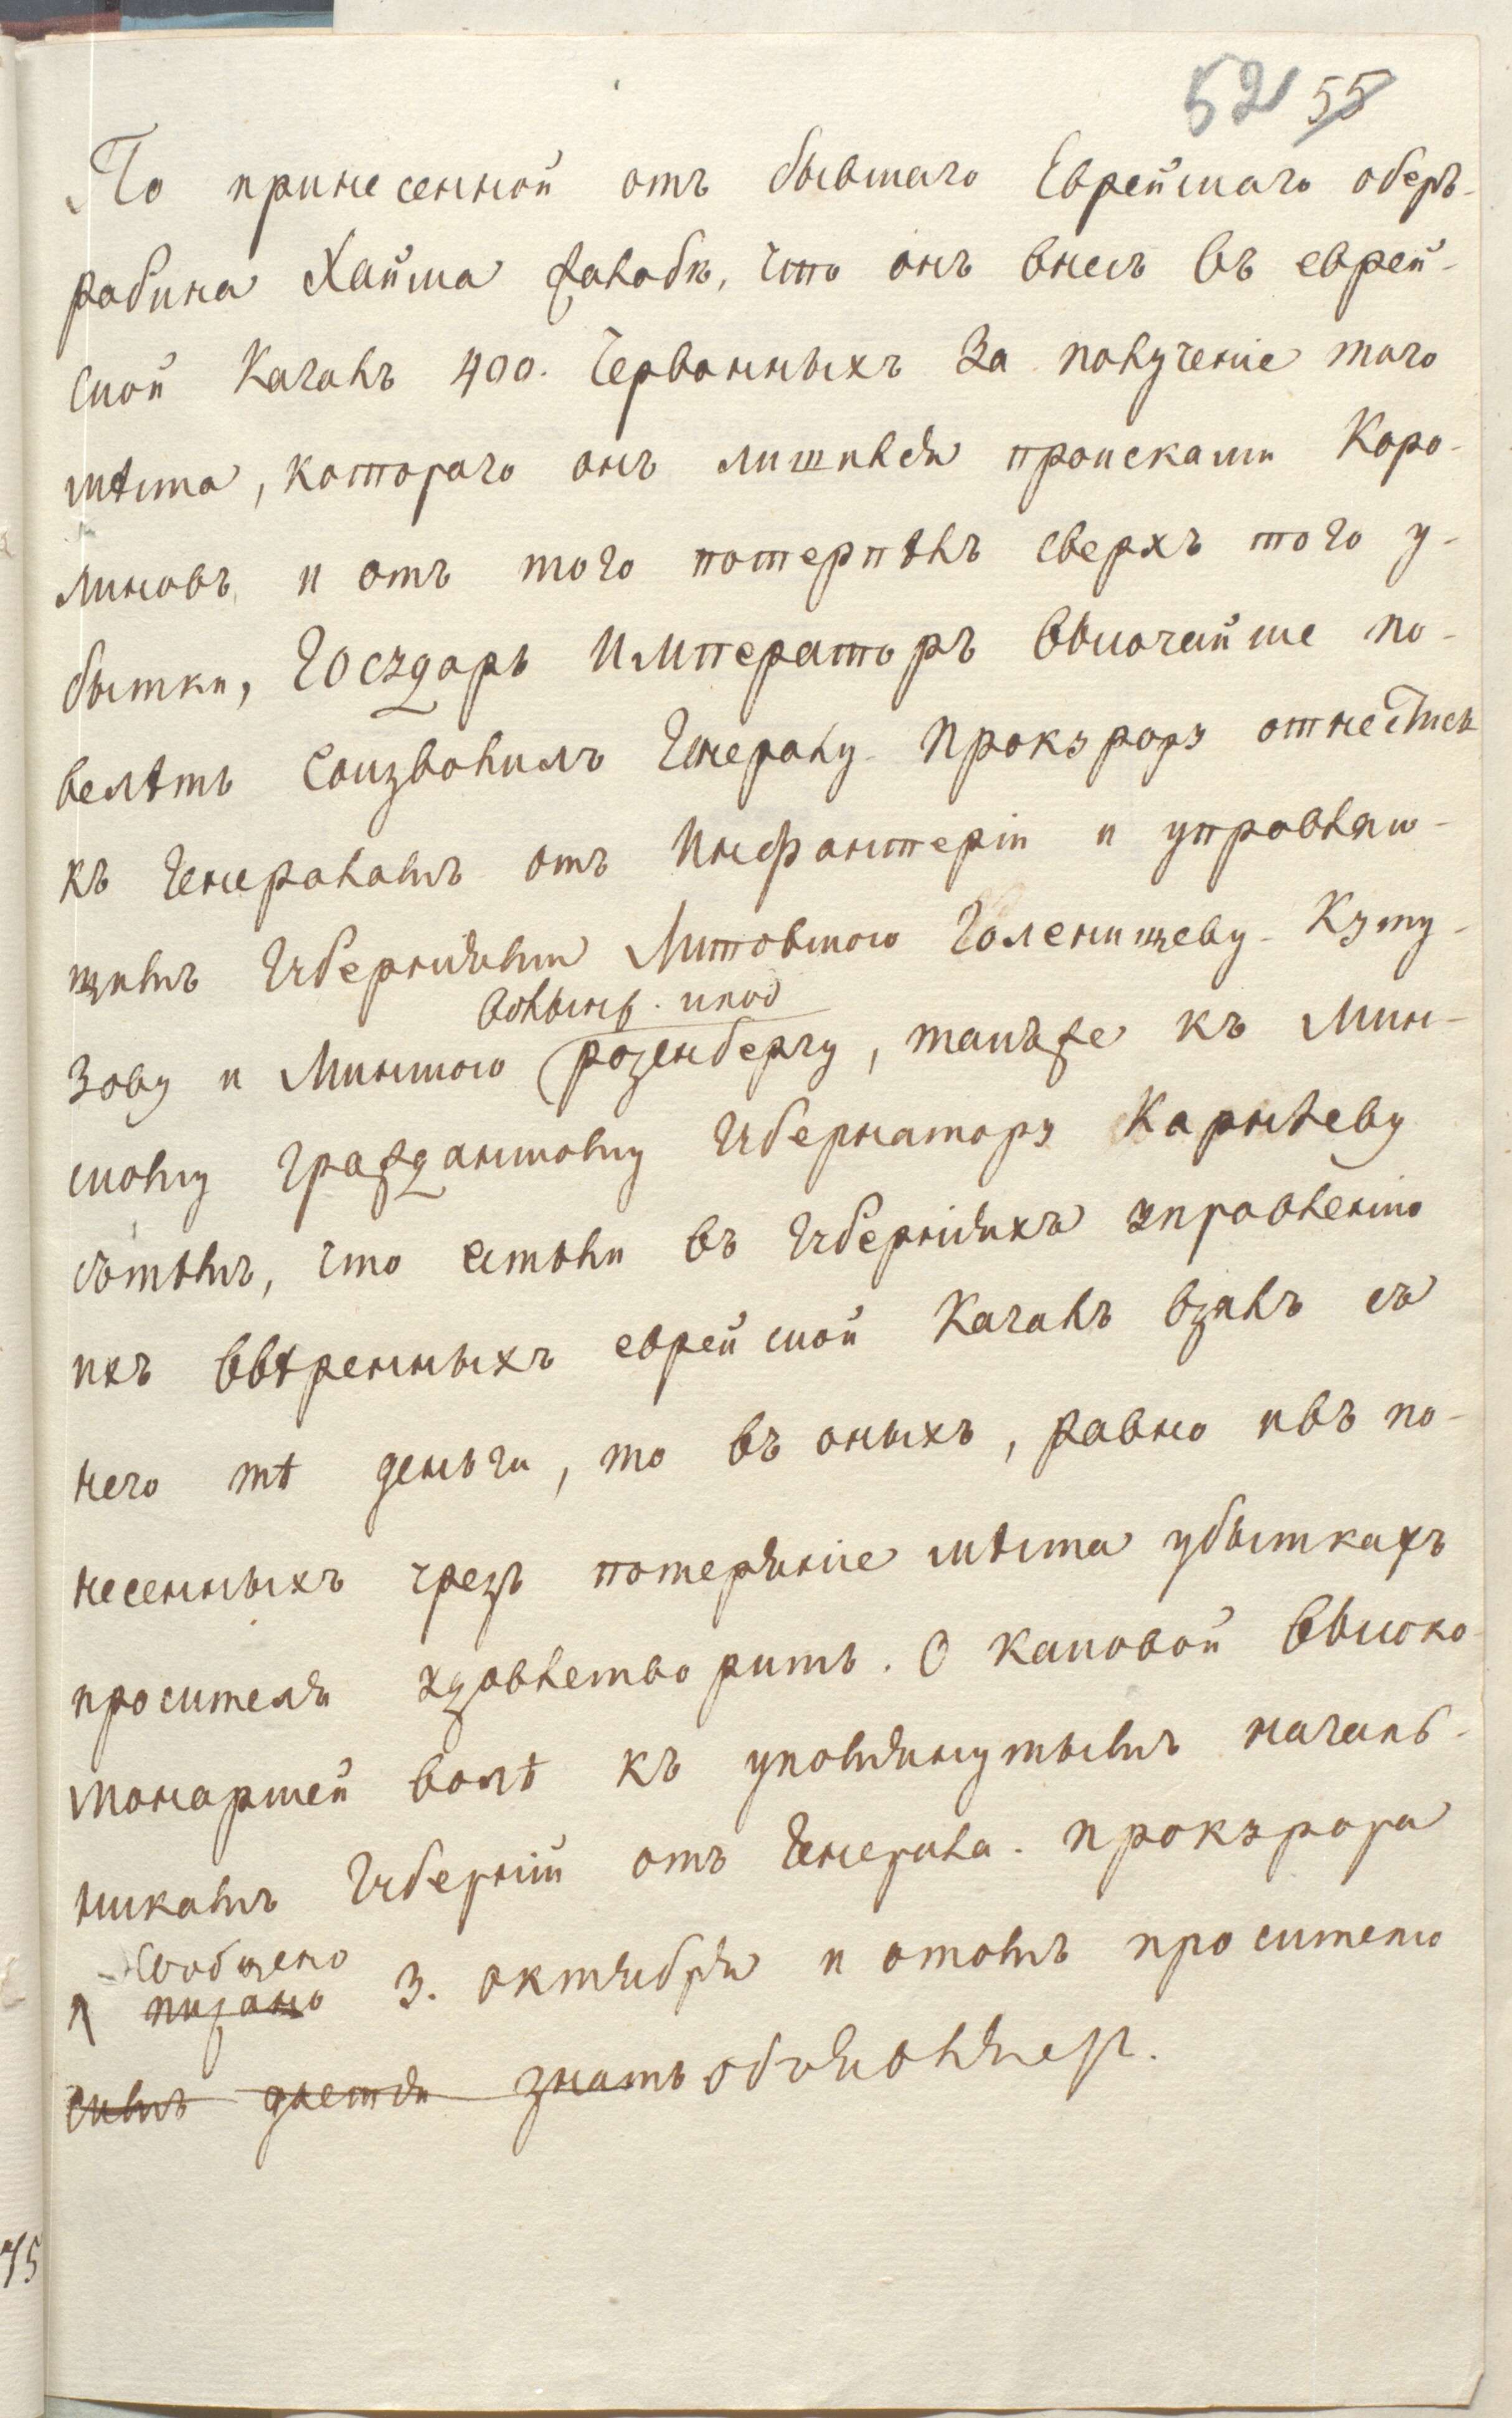 52 55
По принесенной отъ бывшаго Еврейскаго оберъ-
рабина Хайма жалобѣ, что онъ внесъ въ еврей-
ской Кагалъ 400. Червонныхъ За полученіе того
мѣста, котораго онъ лишился происками Каро-
линовъ и отъ того потерпѣлъ сверхъ того у-
бытки, Государь Императоръ высочайше по-
велѣть Соизволилъ Генералу-Прокурору отнестись
къ Генераламъ отъ Инфантеріи и управляю-
щимъ Губерніями Литовскою Голенищеву-Куту-
волынс. и под
зову и Минскою Розенбергу, также къ Мин-
скому гражданскому Губернатору Карнѣеву
съ тѣмъ, что естьли въ Губерніяхъ управленію
ихъ ввѣренныхъ еврейской Кагалъ взялъ съ
него тѣ деньги, то въ оныхъ, равно и въ по-
несенныхъ чрезъ потеряніе мѣста убыткахъ
просителя удовлетворить. О каковой высоко-
монаршей волѣ къ упомянутымъ началь-
никамъ Губерній отъ Генерала-прокурора
Сообщено
писано 3. октября и о томъ просителю
симъ дается знать объявляется.
75